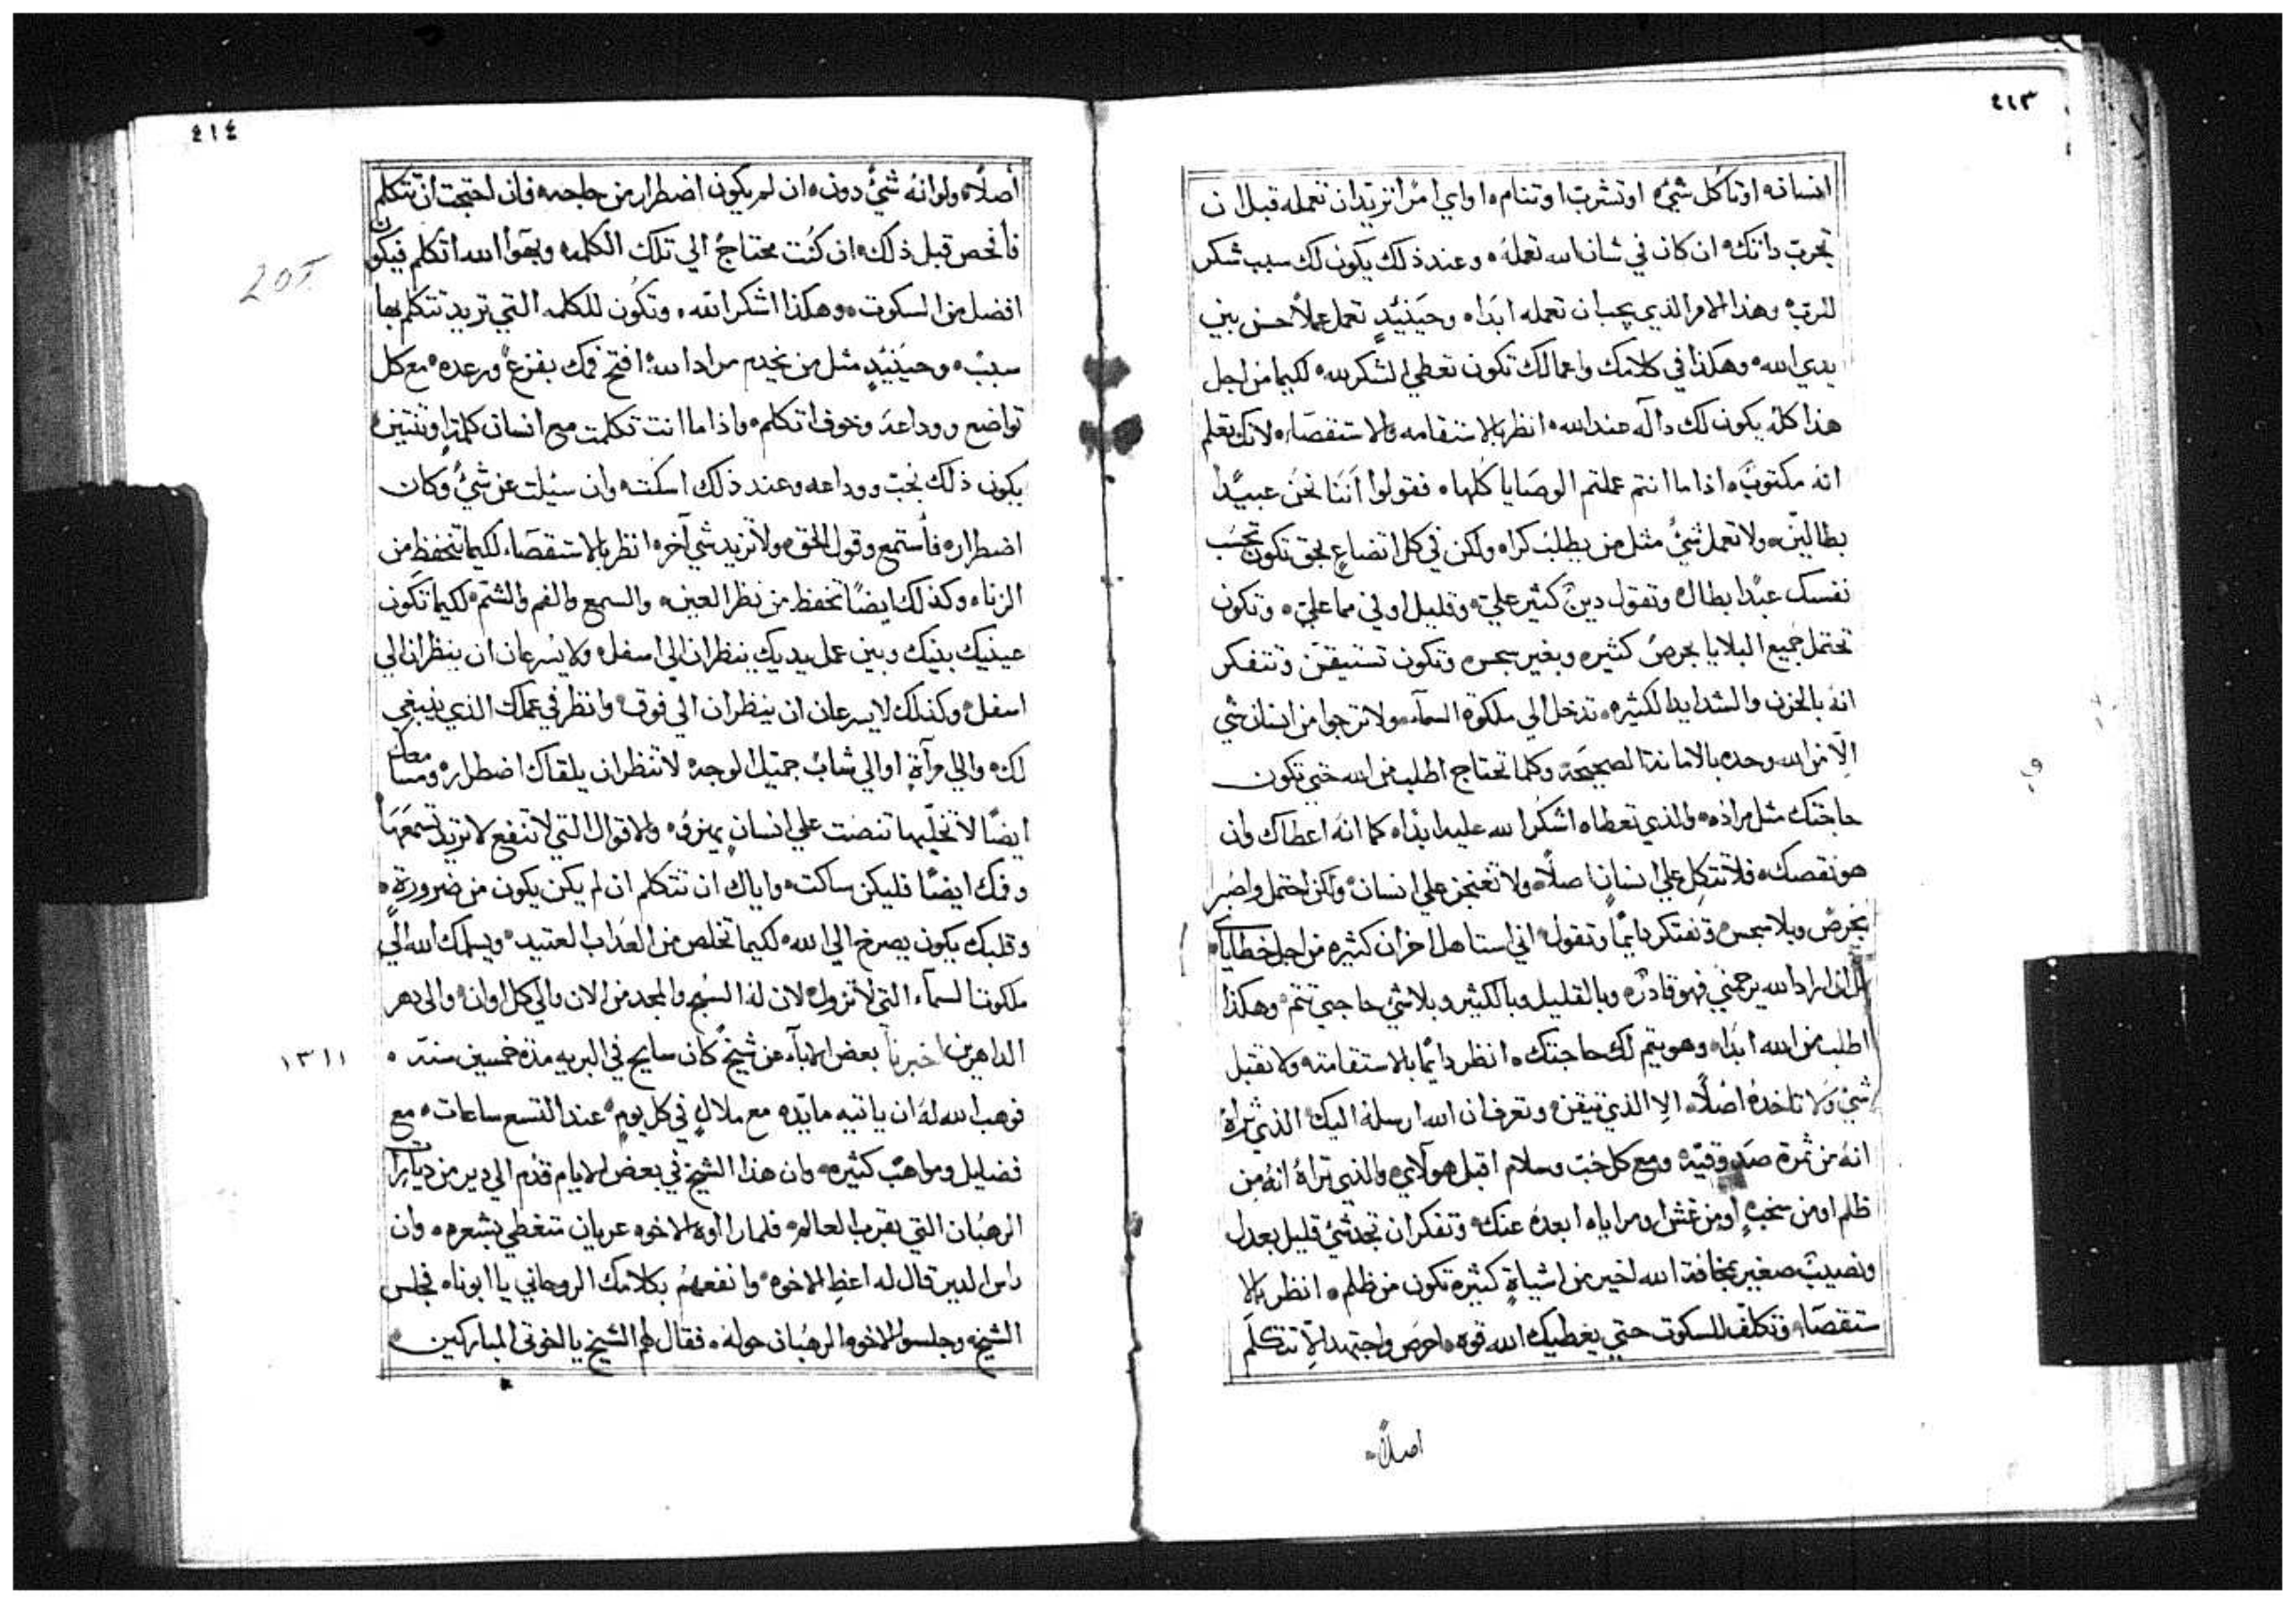 ٤١٣
انسان، اوتاكل شيء، اوتشرب، اوتنام، او اي امرًا تريد ان تعمله قبل ان
تجرب داتك، ان كان في شان الله تعمله، وعند ذلك يكون لك سبب شكر
للرب، وهذا الامر الذي يجب ان تعمله ابدا، وحينيدٍ تعمل عملًا حسن بين
يدي الله، وهكذا في كلامك واعمالك تكون تعطي الشكر لله، لكيما من اجل
هذا كله يكون لك داله عند الله، انظر بالاستقامه والاستقصاء، لانك تعلم
انه مكتوبٌ، اذا ما انتم عملتم الوصايا كلها، فقولوا اننا نحن عبيدًا
بطالين، ولا تعمل شيء مثل من يطلب كراه ولكن في كل اتضاعٍ بحق تكون تحسب
نفسك عبدًا بطال، وتقول دينٌ كثير علي، وقليل اوفي مما علي، وتكون
تحتمل جميع البلايا بحرصٍ كثيره وبغير سجس، وتكون تستيقن وتتفكر
انه بالحزن والشدايد الكثيره، تدخل الي ملكوة السماء، ولا ترجوا من انسان شي
الّا من الله وحده بالامانة الصحيحة، وكلما تحتاج اطلب من الله حتي تكون
حاجتك مثل مراده، والذي تعطاه اشكر الله عليه ابدا، كما انه اعطاك وان
هو نقصك، فلا تتكل علي انسانٍ اصلًا، ولا تغنجن علي انسان، ولكن احتمل واصبر
بحرص وبلا سجس وتفتكر دايمًا وتقول، اني استاهل احزان كثيره من اجل خطاياي،
اراد الله يرحمني فهو قادر، وبالقليل وبالكثير وبلاشي حاجتي تتم، وهكذا
اطلب من الله ابدا، وهو يتم لك حاجتك، انظر دايمًا بالاستقامته ولا تقبل
شيء ولا تاخده اصلًا، الا الذي تيقن، وتعرف ان الله ارسله اليك، الذي تراه
انه من ثمرة صدوقيّه ومع كل حب وسلام اقبل هولاي، والذي تراه انه من
ظلم او من سخبٍ اومن غش او مرايا، ابعده عنك، وتفكر ان تجد شيء قليل بعدل
ونصيبٌ صغير بمخافة الله اخير من اشياةٍ كثيرة تكون من ظلم، انظر بالا
ستقصاء، وتكلف للسكوت حتي يعطيك الله قوه، احرص واجتهد الّا تتكلم
اصلًا،
٤١٤
أصلًا، ولو انه شيء دون، ان لم يكون اضطرار من حاجه، فان احتجت ان تتكلم
فأفحص قبل ذلك، ان كنت محتاجٌ الي تلك الكلمه وبهوأ الله أتكلم فيكون
افضل من السكوت، وهكذا اشكر الله، وتكون للكلمه التي تريد تتكلم بها
سبب، وحينيدٍ مثل من يخدم مراد الله، افتح فمك بفزعٍ ورعده، مع كل
تواضع ووداعة وخوف اتكلم، واذا ما انت تكلمت مع انسان كلمةٍ اوتنتين،
يكون ذلك بحب ووداعه وعند ذلك اسكت، وان سيلت عن شيء وكان
اضطرار، فأستمع وقول الحق، ولا تزيد شي آخر، انظر بالاستقصاء، لكيما تتحفظ من
الزناء، وكذلك ايضًا تحفظ من نظر العين، والسمع والفم والشتم، لكيما تكون
عينيك بينك وبين عمل يديك ينظران الي اسفل، ولا يسرعان ان ينظران الي
اسفل، وكذلك لا يسرعان ان ينظران الي فوق، وانظر في عملك الذي ينبغي
لك، والي مرآةٍ، اوالي شابٌ جميل الوجه لا تنظر ان يلقاك اضطرار، ومسامعك
ايضًا لا تخليها تنصت علي انسانٍ يهزو، والاقوال التي لا تنفع لا تريد تسمعها
وفمك ايضًا فليكن ساكت، واياك ان تتكلم ان لم يكن يكون من ضرورةٍ،
وقلبك يكون يصرخ الي الله، لكيما تخلص من العذاب العتيد، ويسلمك الله الي
ملكوت السماء التي لا تزول، لان له السبح والمجد من الان والي كل اوان، والى دهر
الداهرين، اخبرنا بعض الاباء، عن شيخٌ كان سايح في البريه مدة خمسين سنة،
١٣١١
فوهب الله له ان ياتيه مايده مع ملاكٍ في كل يومٍ، عند التسع ساعات، مع
فضايل ومواهب كثيره، وان هذا الشيخ في بعض الايام قدم الي دير من ديارات
الرهبان التي بقرب العالم، فلما راوه الاخوه عريان متغطي بشعره، وان
راس الدير قال له اعظ الاخوه، وانفعهم بكلامك الروحاني يا ابونا، فجلس
الشيخ، وجلسوا الاخوه الرهبان حوله، فقال لهم الشيخ يا اخوتي المباركين،